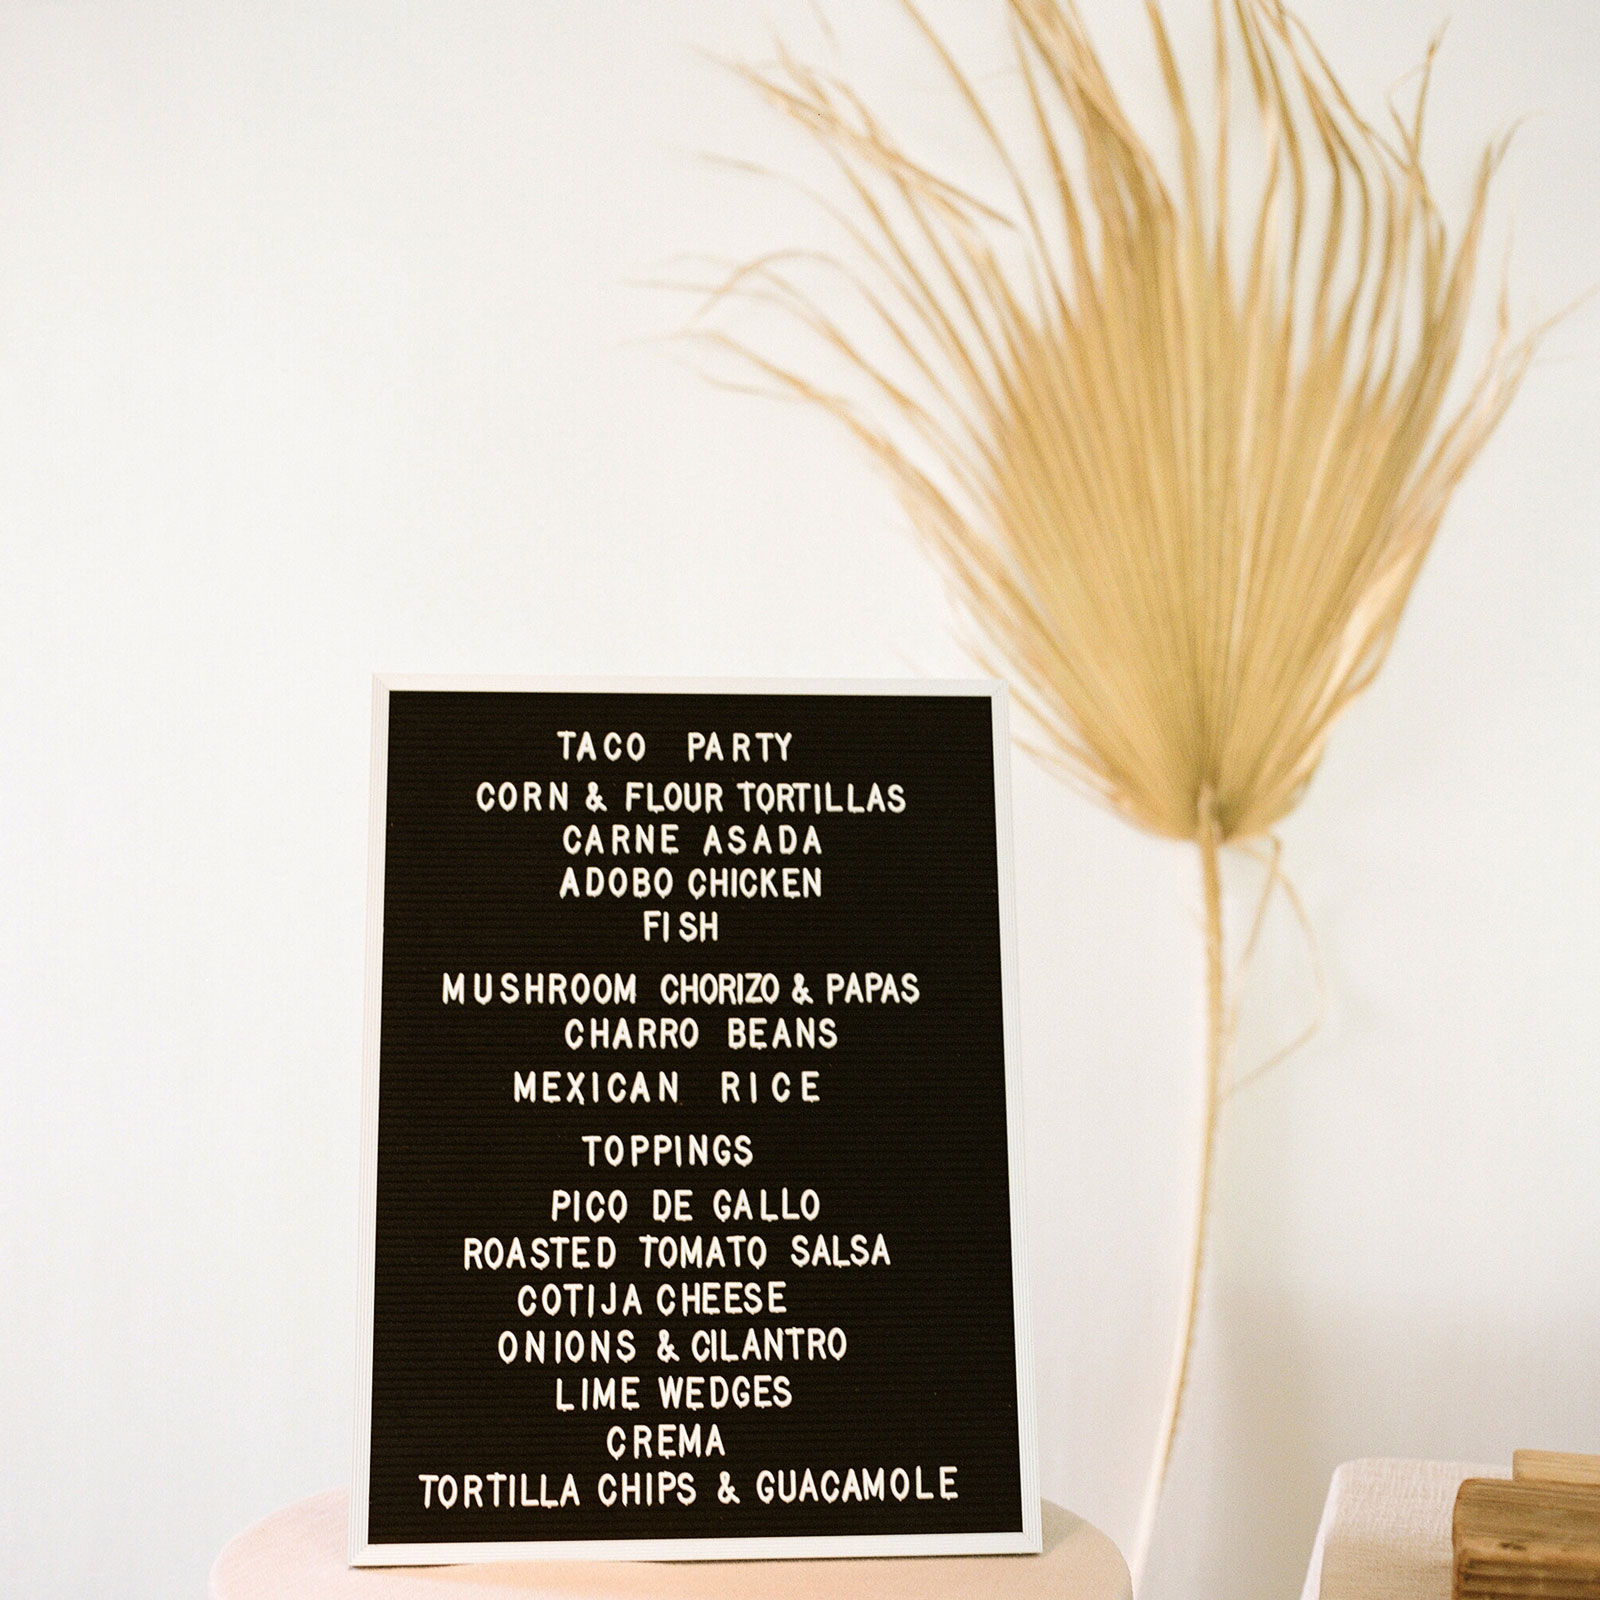 TACO PARTY
CORN & FLOUR TORTILLAS
CARNE ASADA
ADOBO CHICKEN
FISH
MUSHROOM CHORIZO & PAPAS
CHARRO BEANS
MEXICAN RICE
TOPPINGS
PICO DE GALLO
ROASTED TOMATO SALSA
COTIJA CHEESE
ONIONS & CILANTRO
LIME WEDGES
CREMA
TORTILLA CHIPS & GUACAMOLE